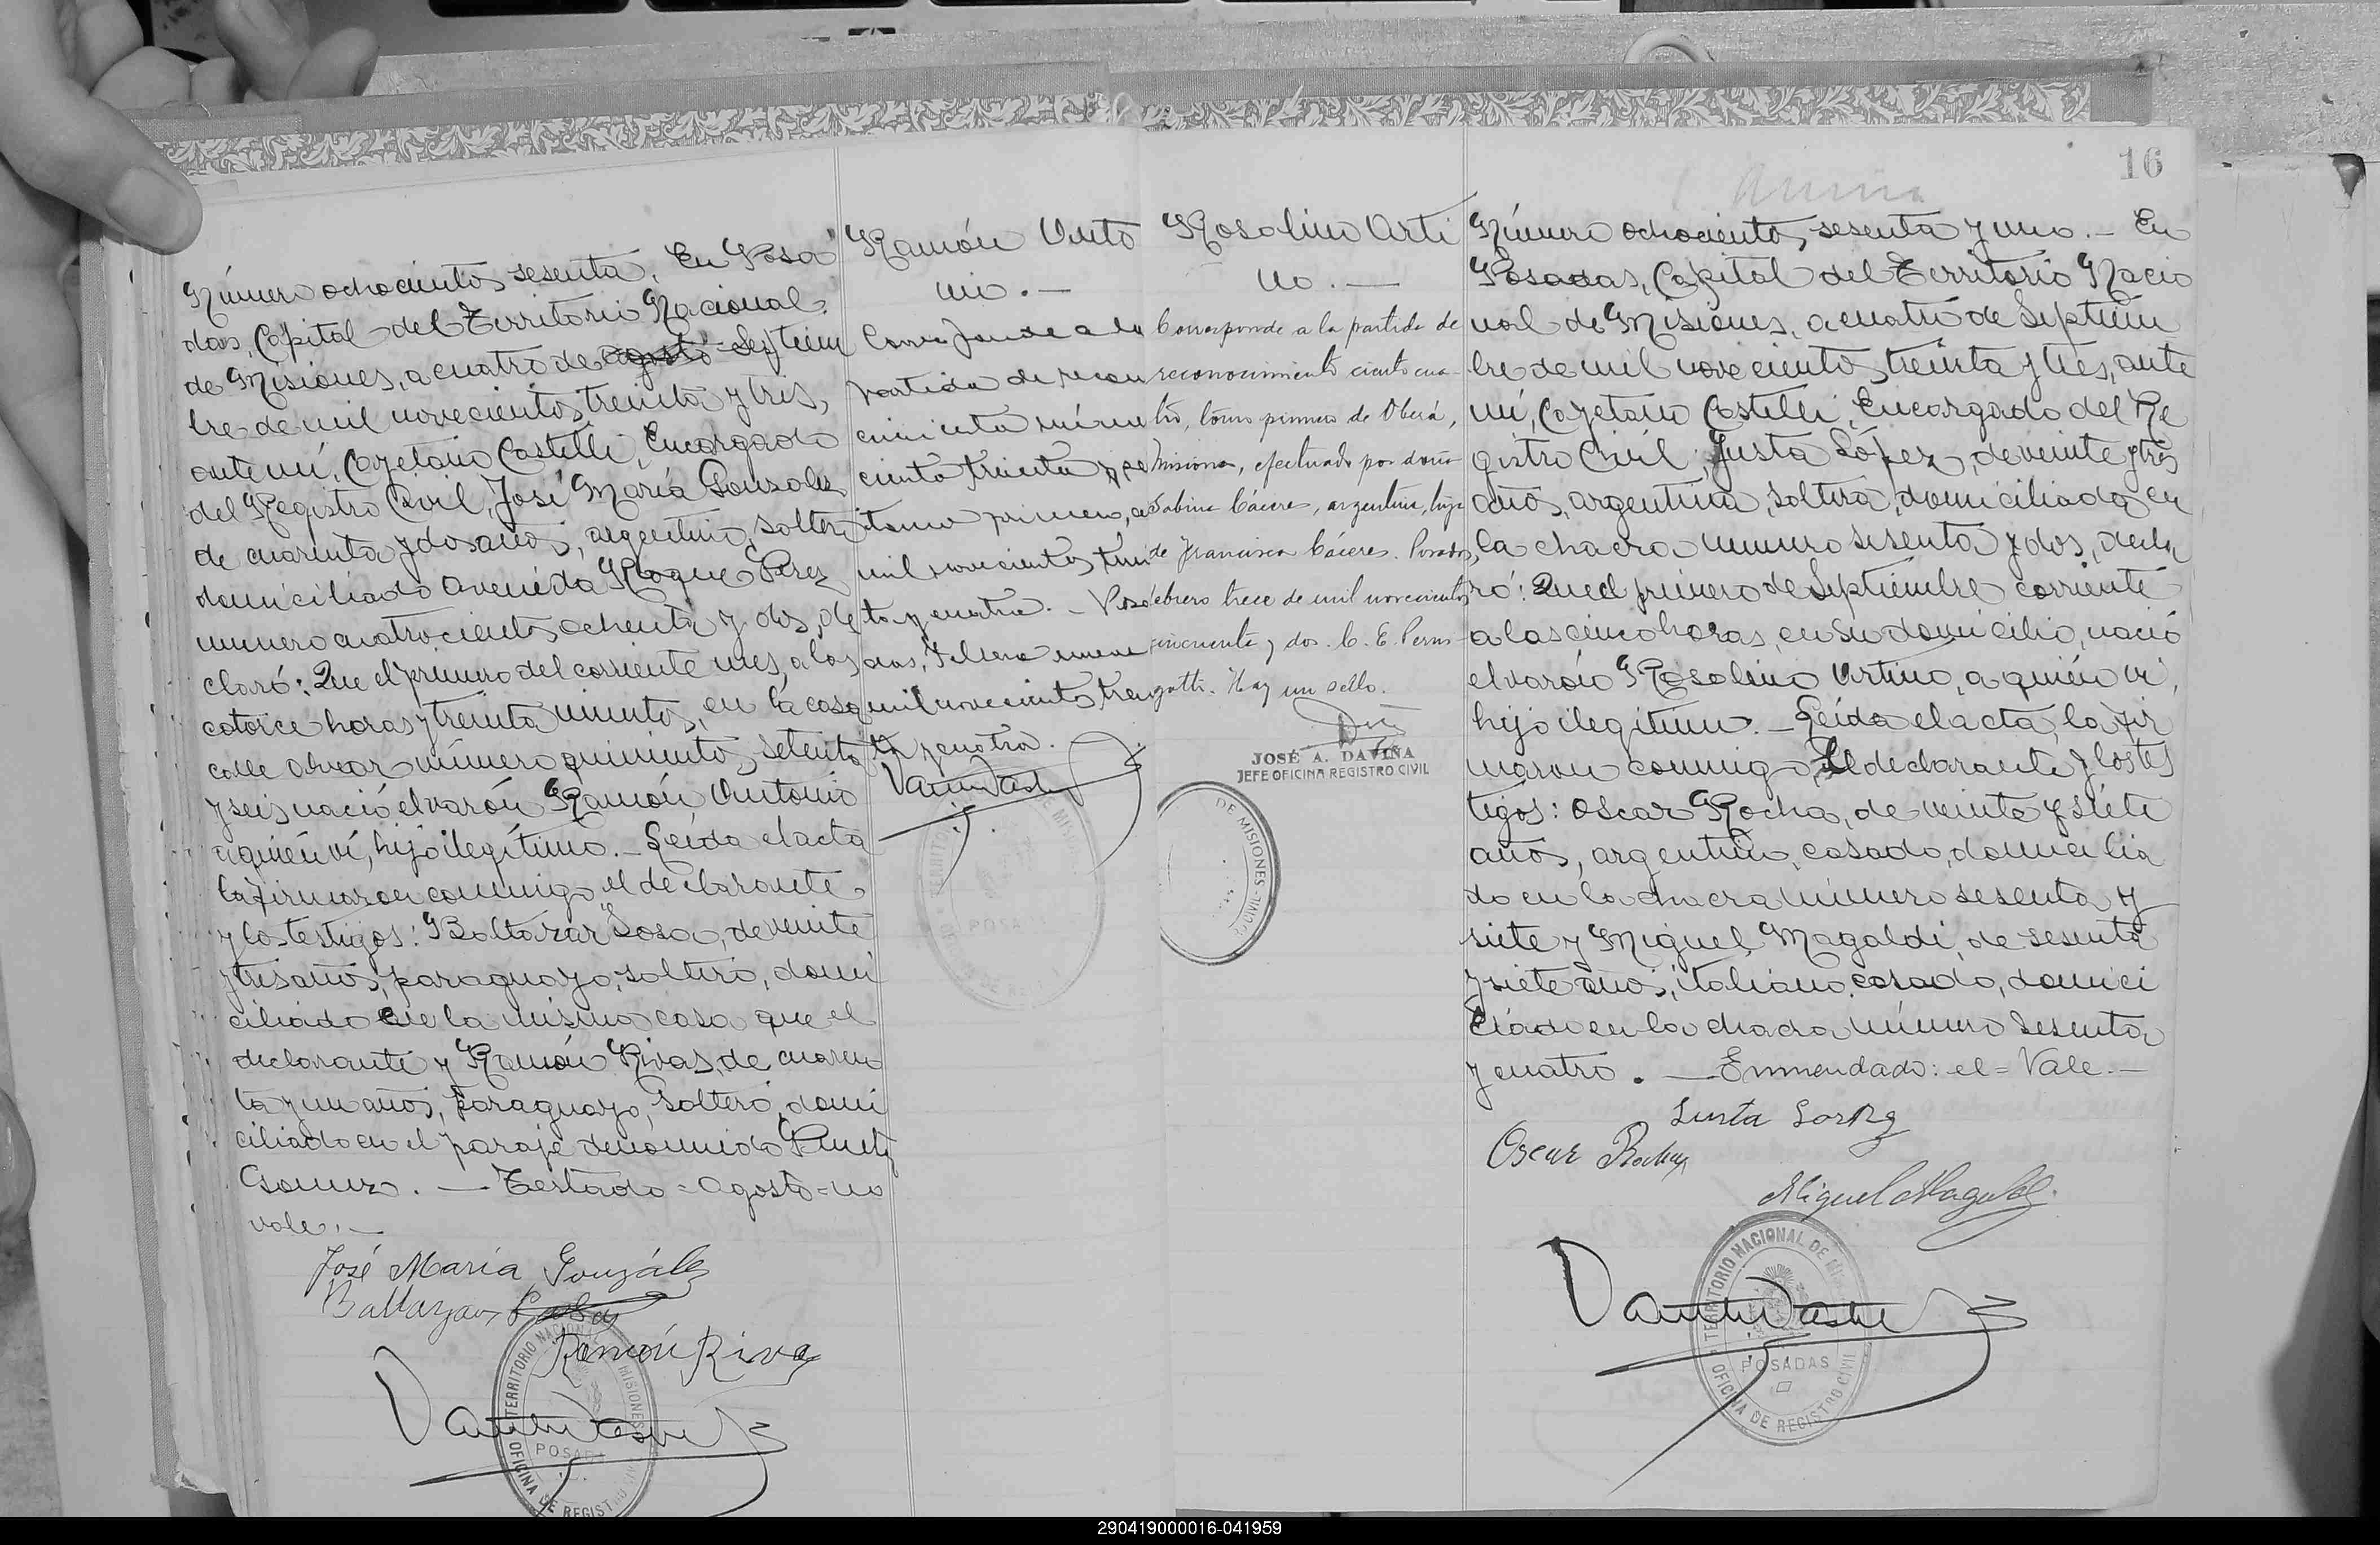 16
Número ochocientos sesenta. En Posa
das, Capital del Territorio Nacional
de Misiones, a cuatro de agosto Septiem
bre de mil novecientos treinta y tres,
ante mí, Cayetano Castelli, Encargado
del Registro Civil, José María Gonsalez
de cuarenta y dos años, argentino, soltero
domiciliado avenida Roque Perez
numero cuatrocientos ochenta y dos, de
claró: Que el primero del corriente mes, a las
catorce horas y treinta minutos, en la casa
calle alvear número quinientos setenta
y seis nació el varón Ramón Antonio
a quién ví, hijo ilegítimo.- Leída el acta
la firmaron conmigo el declarante
y los testigos: Baltazar Sosa, de veinte
y tres años, paraguayo, soltero, domi
ciliado en la misma casa que el
declarante y Ramón Rivas, de cuaren
ta y un años, paraguayo, soltero, domi
ciliado en el paraje denominado
vale.-
José María Gonzáles
Baltazar Sosa
Ramón Riva
TERRITORIO NACIONAL MISIONES
POSADAS
OFICINA DE REGISTRO
Ramón Anto
nio.-
Corresponde a la
partida de recono
cimiento número
ciento treinta y
tomo primero,
mil novecientos trein
ta y cuatro.- Posa
das, Febrero nueve
mil novecientos trein
ta y cuatro.
POSADAS
Rosalino Arti
no.-
Corresponde a la partida de
reconocimiento ciento cua-
tro, tomo primero de Oberá,
Misiones, efectuado por doña
Sabina Cáceres, argentina, hija
de Francisca Cáceres. Posadas,
febrero trece de mil novecientos
cincuenta y dos. C. E. Perus-
gatti. Hay un sello.
JOSÉ A. DAVIÑA
JEFE OFICINA REGISTRO CIVIL
DE MISIONES
CIVIL
Número ochocientos sesenta y uno.- En
Posadas, Capital del Territorio Nacio
nal de Misiones, a cuatro de Septiem
bre de mil novecientos treinta y tres, ante
mí, Cayetano Castelli, Encargado del Re
gistro Civil, Justa López, de veinte y tres
años, argentina, soltera, domiciliada en
la chacra numero sesenta y dos, decla
ró: Que el primero de Septiembre corriente
a las cinco horas, en su domicilio, nació
el varón Rosalino Artino, a quién ví,
hijo ilegítimo.- Leída el acta, la fir
maron conmigo, el declarante y los tes
tigos: Oscar Rocha, de veinte y siete
años, argentino, casado, domicilia
do en la chacra número sesenta y
siete y Miguel Magaldi, de sesenta
y siete años, italiano, casado, domici
liado en la chacra número sesenta
y cuatro. - Enmendado: el = Vale.-
Justa Lopez
Oscar Rocha
Miguel Magaldi
TERRITORIO NACIONAL DE MISIONES
POSADAS
OFICINA DE REGISTRO CIVIL
290419000016-041959